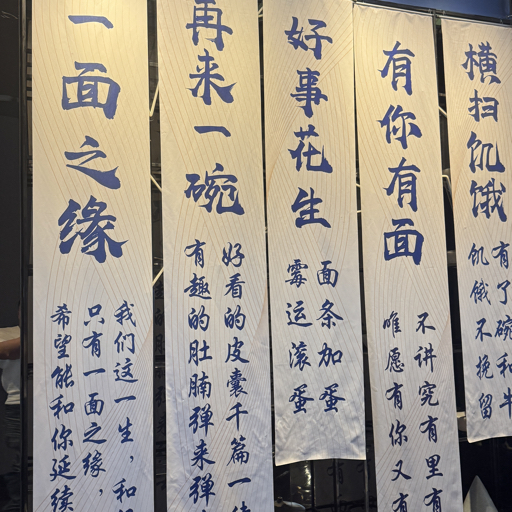 一面之缘
我们这一生，和
只有一面之缘，
希望能和你延续
再来一碗
好看的皮囊千篇一
有趣的肚腩弹来弹
好事花生
面条加蛋
霉运滚蛋
有你有面
不讲究有里有
唯愿有你又有
横扫饥饿
有了碗和牛
饥饿不挽留